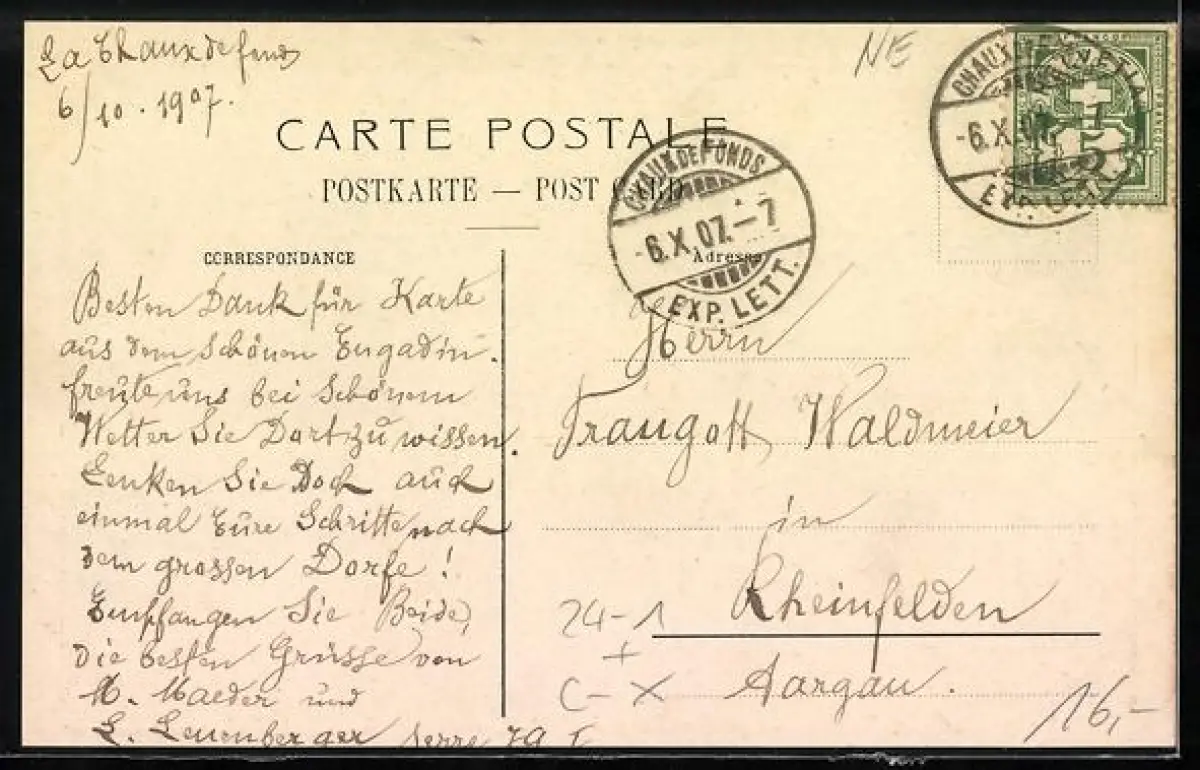 La Chaux de fonds
6/10. 1907.
NE
CARTE POSTALE
POSTKARTE — POST CARD
CHAUX DE FONDS
-6.X.07.-7
EXP. LETT.
CHAUX DE
-6.X.07
EXP. LETT.
FRANCO
HELVETIA
5
CORRESPONDANCE
Adresse
Besten Dank für Karte
aus dem schönen Engadin.
freute uns bei schönem
Wetter Sie Dort zu wissen.
Lenken Sie Doch auch
einmal Eure Schritte nach
dem grossen Dorfe!
Empfangen Sie Beide,
die besten Grüsse von
M. Maeder und
L. Leuenberger Serre 79 I
Herrn
Traugott Waldmeier
in
Rheinfelden
Aargau.
24-1
+
C-X
16,-